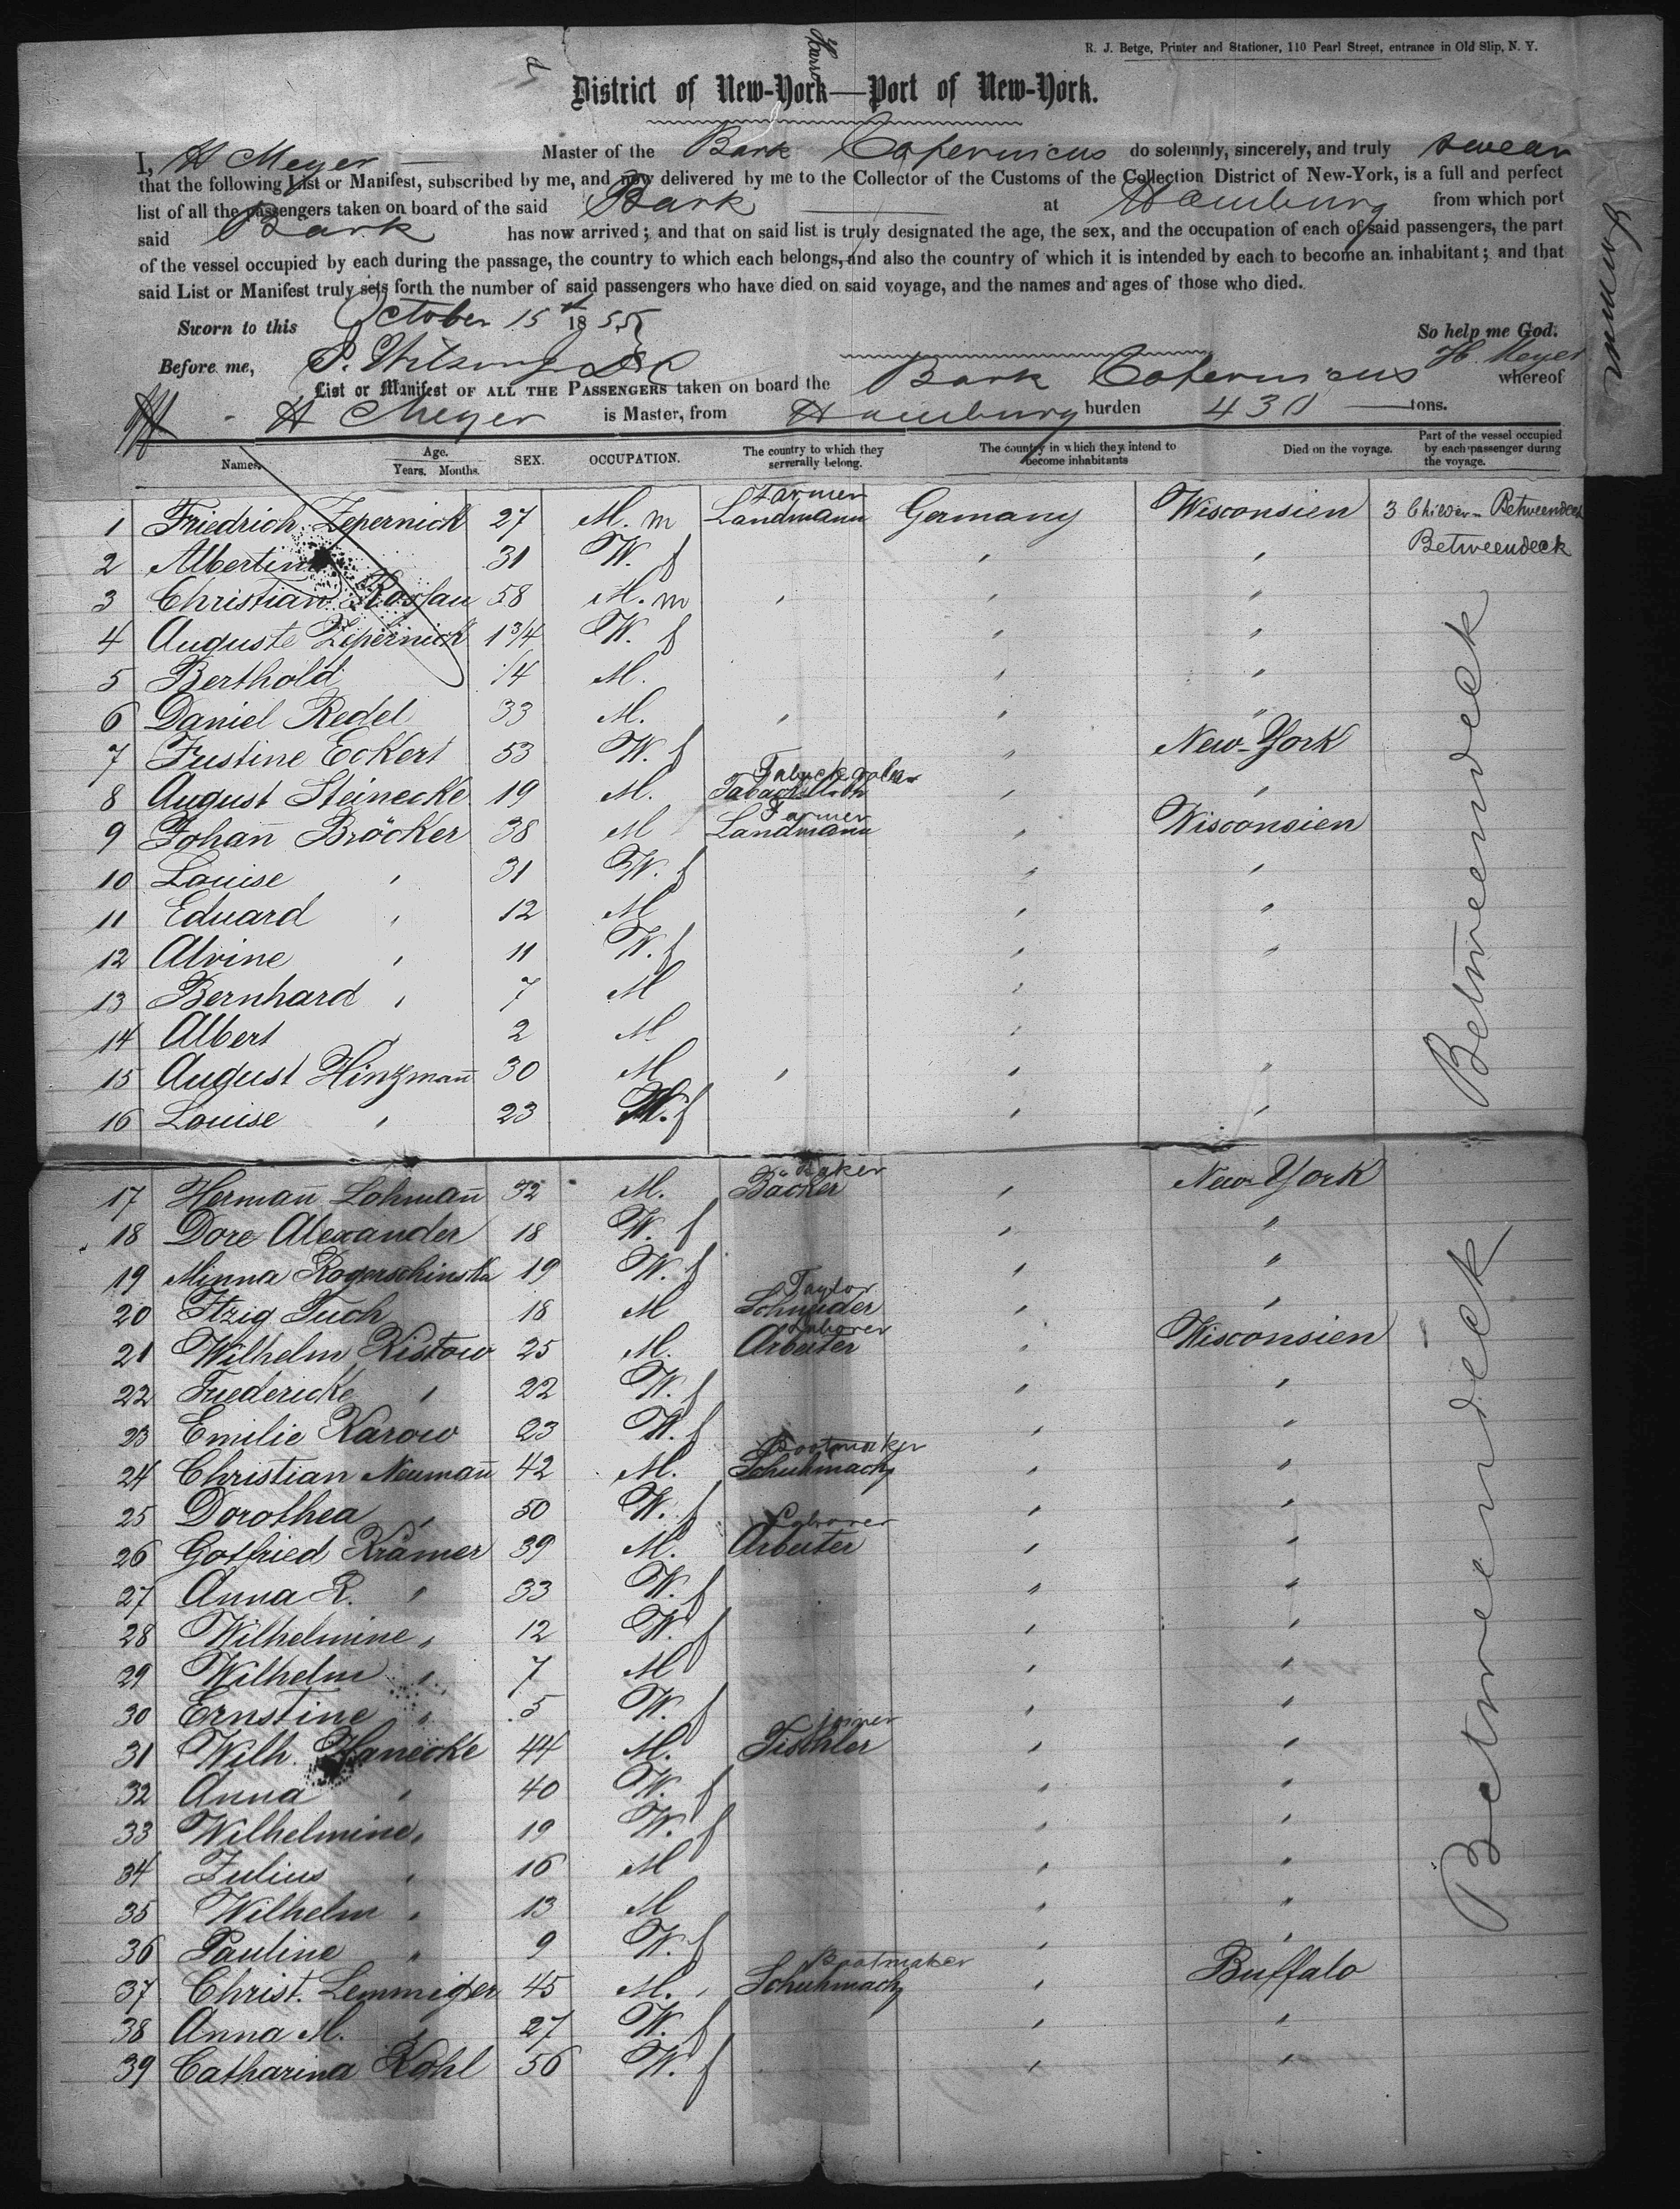 R. J. Betge, Printer and Stationer, 110 Pearl Street, entrance in Old Slip, N. Y.
District of New-York—Port of New-York.
I, H Meyer Master of the Bark Copernicus do solemnly, sincerely, and truly swear
that the following List or Manifest, subscribed by me, and now delivered by me to the Collector of the Customs of the Collection District of New-York, is a full and perfect
list of all the passengers taken on board of the said Bark at Hamburg from which port
said Bark has now arrived; and that on said list is truly designated the age, the sex, and the occupation of each of said passengers, the part
of the vessel occupied by each during the passage, the country to which each belongs, and also the country of which it is intended by each to become an inhabitant; and that
said List or Manifest truly sets forth the number of said passengers who have died on said voyage, and the names and ages of those who died.
Sworn to this October 15th 1855 So help me God.
Before me, P. Wilson DC H. Meyer
List or Manifest OF ALL THE PASSENGERS taken on board the Bark Copernicus whereof
H Meyer is Master, from Hamburg burden 430 tons.
Names. Age. Years. Months. SEX. OCCUPATION. The country to which they serverally belong. The country in which they intend to become inhabitants Died on the voyage. Part of the vessel occupied by each passenger during the voyage.
Farmer
1 Friedrich Zepernick 27 M. m Landmann Germany Wisconsien 3 Childern Betweendeck
2 Albertine 31 W. f " " Betweendeck
3 Christian Rossau 58 M. m " " "
4 Auguste Zepernick 1 3/4 W. f " "
5 Berthold 1/4 M. " "
6 Daniel Redel 33 M. " " "
7 Justine Eckert 53 W. f " New-York
8 August Steinecke 19 M. " "
Farmer
9 Johan̄ Bröcker 38 M Landmann " Wisconsien
10 Louise " 31 W. f " "
11 Eduard " 12 M " "
12 Alvine " 11 W. f " "
13 Bernhard " 7 M "
14 Albert " 2 M "
15 August Hinzman̄ 30 M " " "
16 Louise " 23 W. f " "
Betweendeck
Baker
17 Herman̄ Lohman̄ 32 M. Bäcker " New-York
18 Dore Alexander 18 W. f " "
19 Minna 19 W. f " "
Taylor
20 Itzig Tuch 18 M Schneider " "
Laborer
21 Wilhelm Ristow 25 M. Arbeiter " Wisconsien
22 Friedericke " 22 W. f " "
23 Emilie Karow 23 W. f " "
Bootmaker
24 Christian Neuman̄ 42 M. Schuhmach " "
25 Dorothea " 50 W. f " "
Laborer
26 Gotfried Krämer 39 M. Arbeiter " "
27 Anna R. " 33 W. f " "
28 Wilhelmine " 12 W. f " "
29 Wilhelm " 7 M " "
30 Ernstine " 5 W. f " "
Joiner
31 Wilh. Hanecke 44 M. Tischler " "
32 Anna " 40 W. f " "
33 Wilhelmine " 19 W. f " "
34 Julius " 16 M " "
35 Wilhelm " 13 M " "
36 Pauline " 9 W. f " "
Bootmaker
37 Christ. Lemmiger 45 M. Schuhmach " Buffalo
38 Anna M. " 27 W. f " "
39 Catharina Kohl 56 W. f " "
Betweendeck